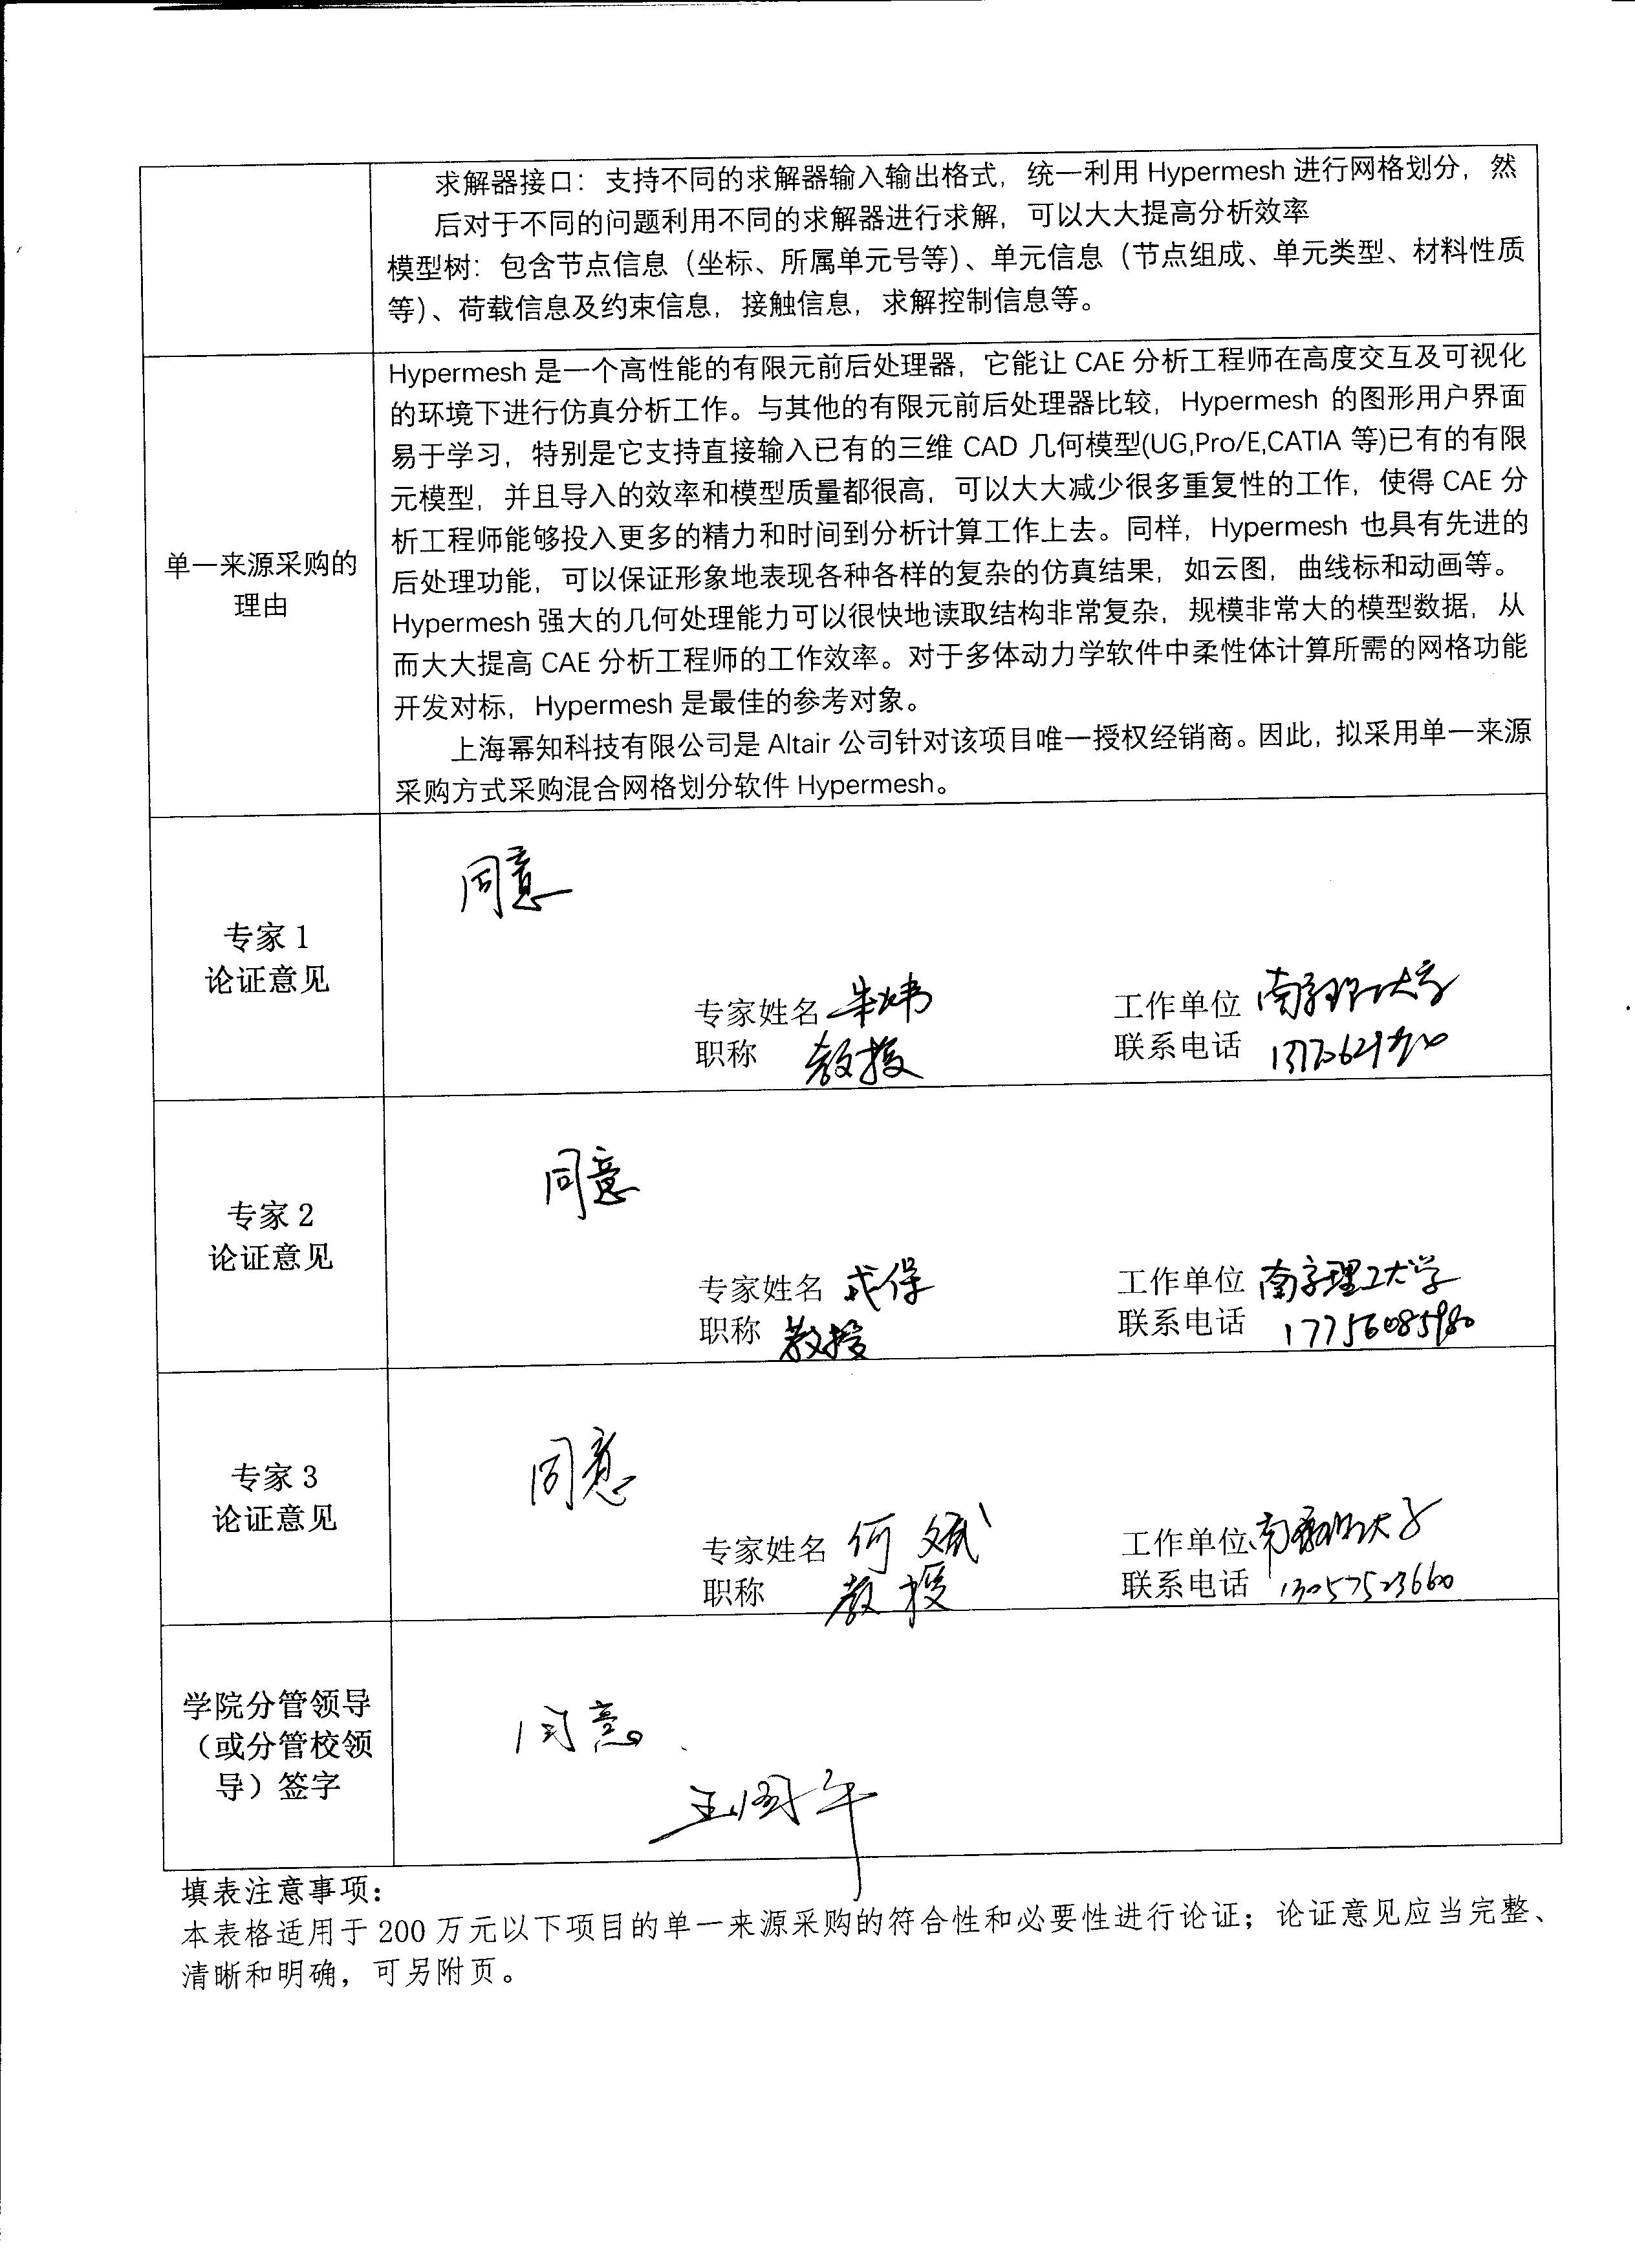 求解器接口：支持不同的求解器输入输出格式，统一利用 Hypermesh 进行网格划分，然
后对于不同的问题利用不同的求解器进行求解，可以大大提高分析效率
模型树：包含节点信息（坐标、所属单元号等）、单元信息（节点组成、单元类型、材料性质
等）、荷载信息及约束信息，接触信息，求解控制信息等。
单一来源采购的
理由
Hypermesh 是一个高性能的有限元前后处理器，它能让 CAE 分析工程师在高度交互及可视化
的环境下进行仿真分析工作。与其他的有限元前后处理器比较，Hypermesh 的图形用户界面
易于学习，特别是它支持直接输入已有的三维 CAD 几何模型(UG,Pro/E,CATIA 等)已有的有限
元模型，并且导入的效率和模型质量都很高，可以大大减少很多重复性的工作，使得 CAE 分
析工程师能够投入更多的精力和时间到分析计算工作上去。同样，Hypermesh 也具有先进的
后处理功能，可以保证形象地表现各种各样的复杂的仿真结果，如云图，曲线标和动画等。
Hypermesh 强大的几何处理能力可以很快地读取结构非常复杂，规模非常大的模型数据，从
而大大提高 CAE 分析工程师的工作效率。对于多体动力学软件中柔性体计算所需的网格功能
开发对标，Hypermesh 是最佳的参考对象。
上海幂知科技有限公司是 Altair 公司针对该项目唯一授权经销商。因此，拟采用单一来源
采购方式采购混合网格划分软件 Hypermesh。
专家 1
论证意见
同意
专家姓名 朱炜 工作单位 南京理工大学
职称 教授 联系电话
专家 2
论证意见
同意
专家姓名 戎保 工作单位 南京理工大学
职称 教授 联系电话 17756085980
专家 3
论证意见
同意
专家姓名 何斌 工作单位 南京理工大学
职称 教授 联系电话 13057523660
学院分管领导
（或分管校领
导）签字
同意
填表注意事项：
本表格适用于 200 万元以下项目的单一来源采购的符合性和必要性进行论证；论证意见应当完整、
清晰和明确，可另附页。